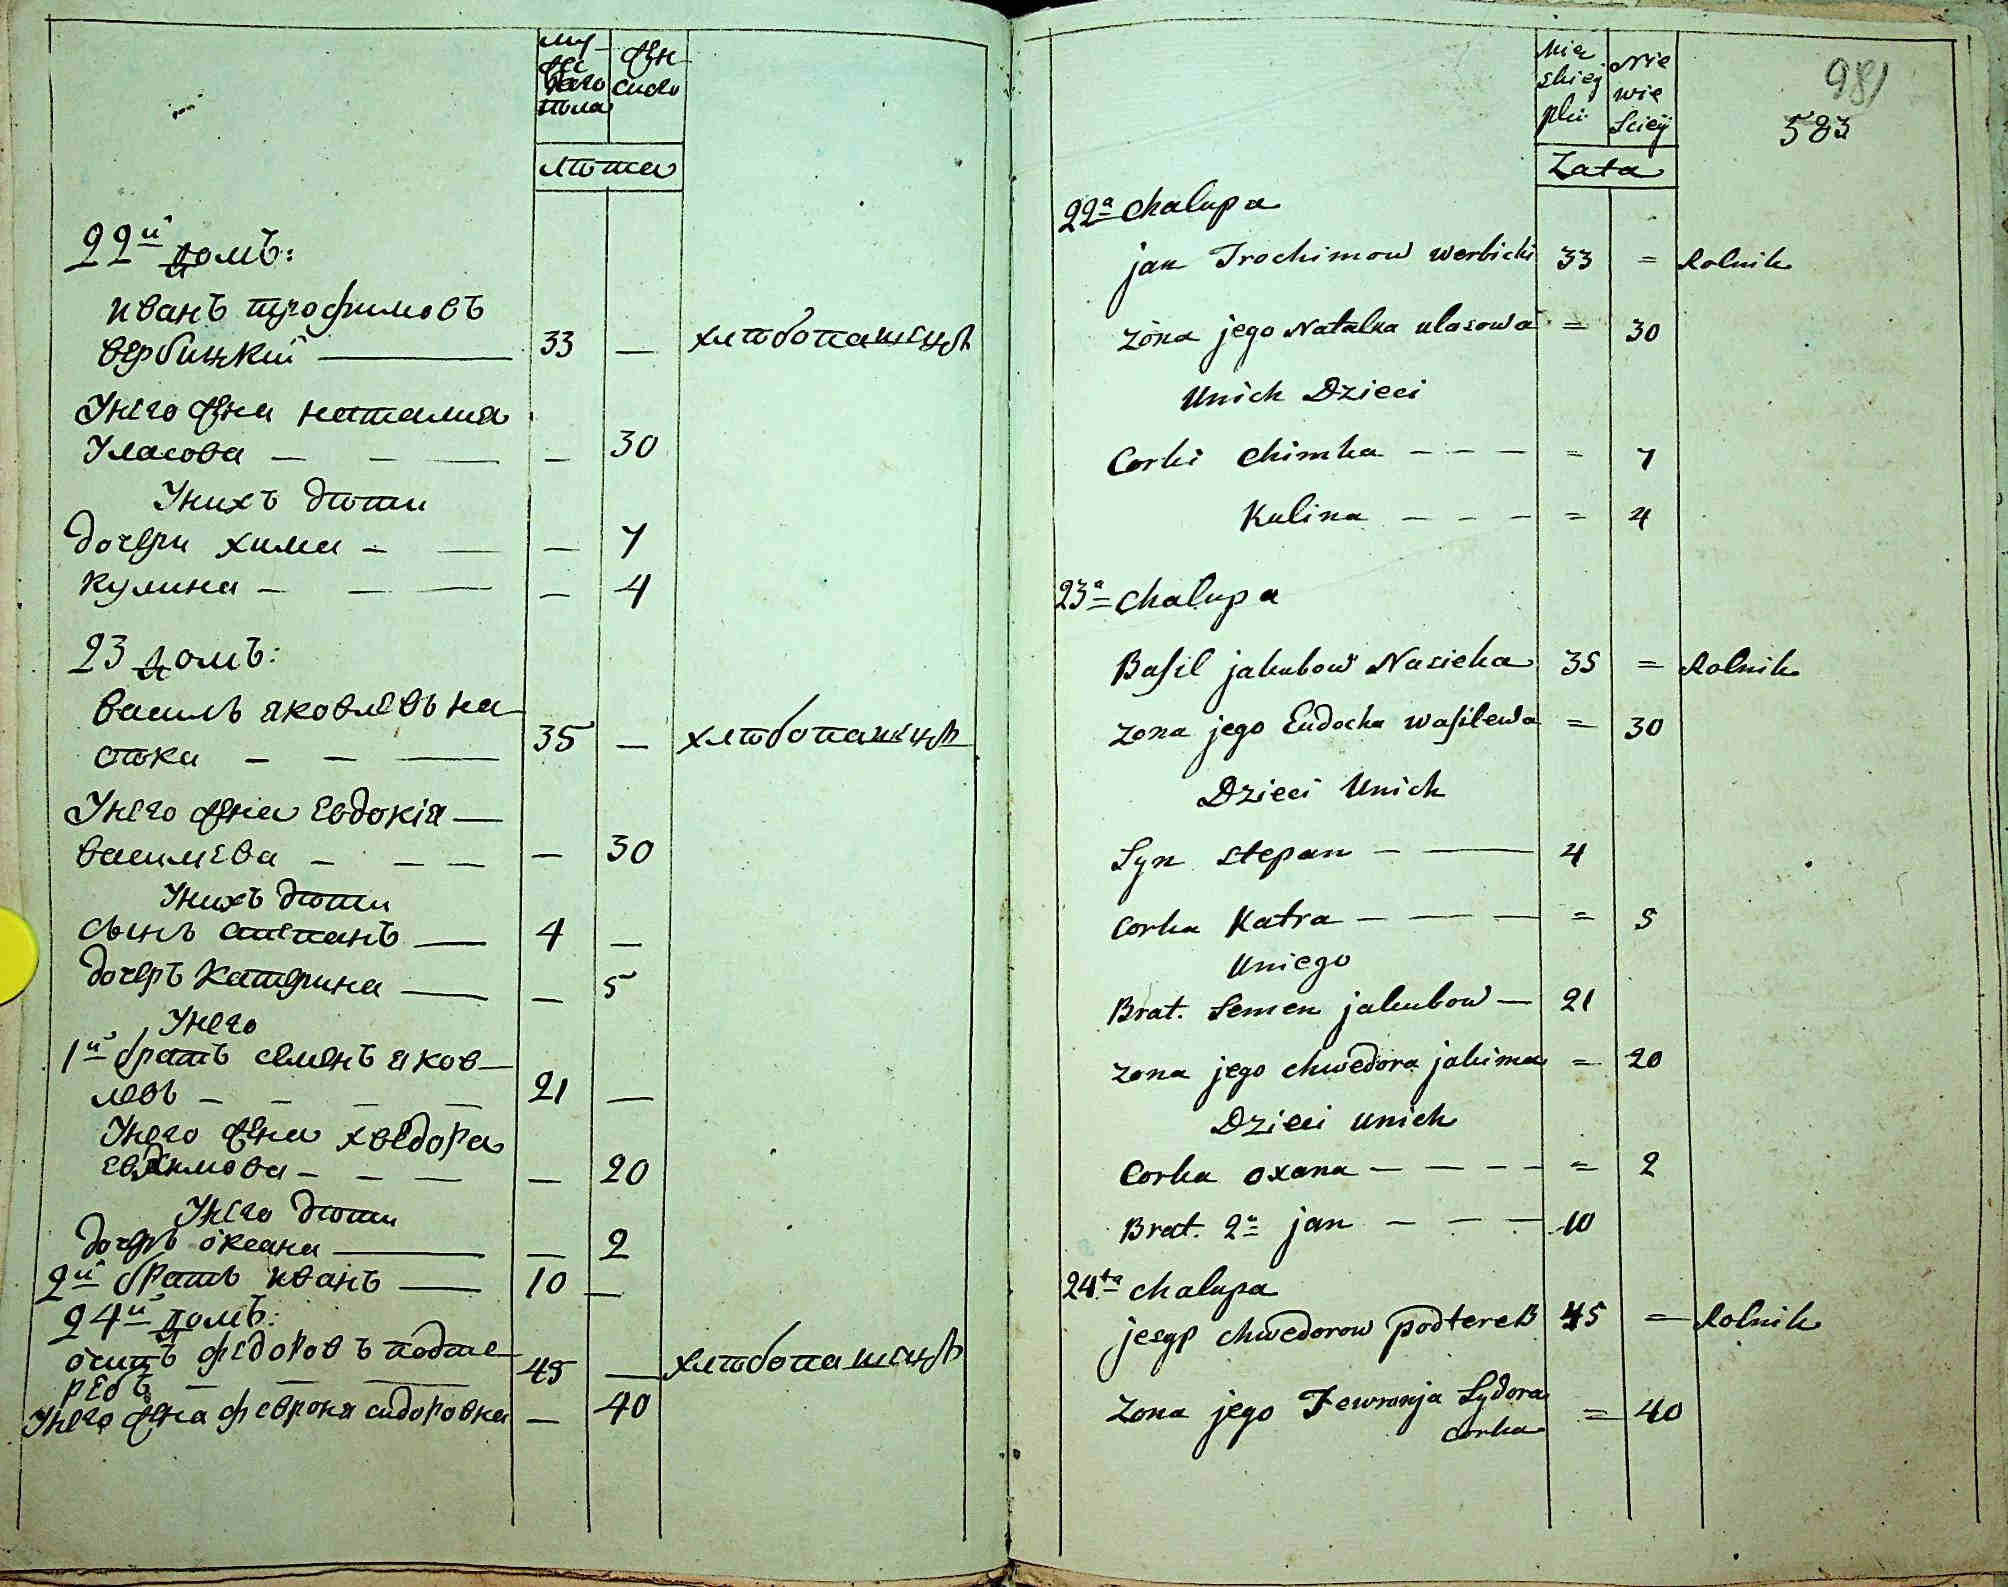 му-
жес
каго
пола
жен
скаго
лѣта
22й домъ:
иванъ трофимовъ
вербицкий 33 — хлѣбопашецъ
Унего жена наталия
Уласова — — — — 30
Унихъ дѣти
дочери хима — — — 7
кулина — — — — 4
23 домъ:
василь яковлевъ на-
сѣка — — — 35 — хлѣбопашецъ
Унего жена Евдокія —
василева — — — — 30
Унихъ дѣти
сынъ степанъ — 4 —
дочеръ катерина — — 5
Унего
1й братъ семенъ яков-
левъ — — — — 21 —
Унего жена хведора
— — — — 20
Унего дѣти
дочеръ оксана — — 2
2й братъ иванъ — 10 —
24й домъ:
осипъ федоровъ подте-
ребъ — — — 45 — хлѣбопашецъ
Унего жена февроня сидоровна — 40
Mez
skiej
płci
Nie
wie
sciey
Lata
981
583
22a chalupa
jan Trochimow werbicki 33 = Rolnik
żona jego Natalka ulasowa = 30
Unich Dzieci
Corki chimka — — — = 7
Kulina — — — = 4
23a chalupa
Basil jakubow Nasieka 35 = Rolnik
zona jego Eudocha wasilewa = 30
Dzieci Unich
Syn stepan — — 4
corka Katra — — — = 5
Uniego
Brat. Semen jakubow — 21
zona jego chwedora jakima = 20
Dzieci unich
Corka oxana — — — — = 2
Brat. 2u jan — — — 10
24ta chalupa
jesyp chwedorow podtereb 45 = Rolnik
Zona jego Fewronja Sydora = 40
corka